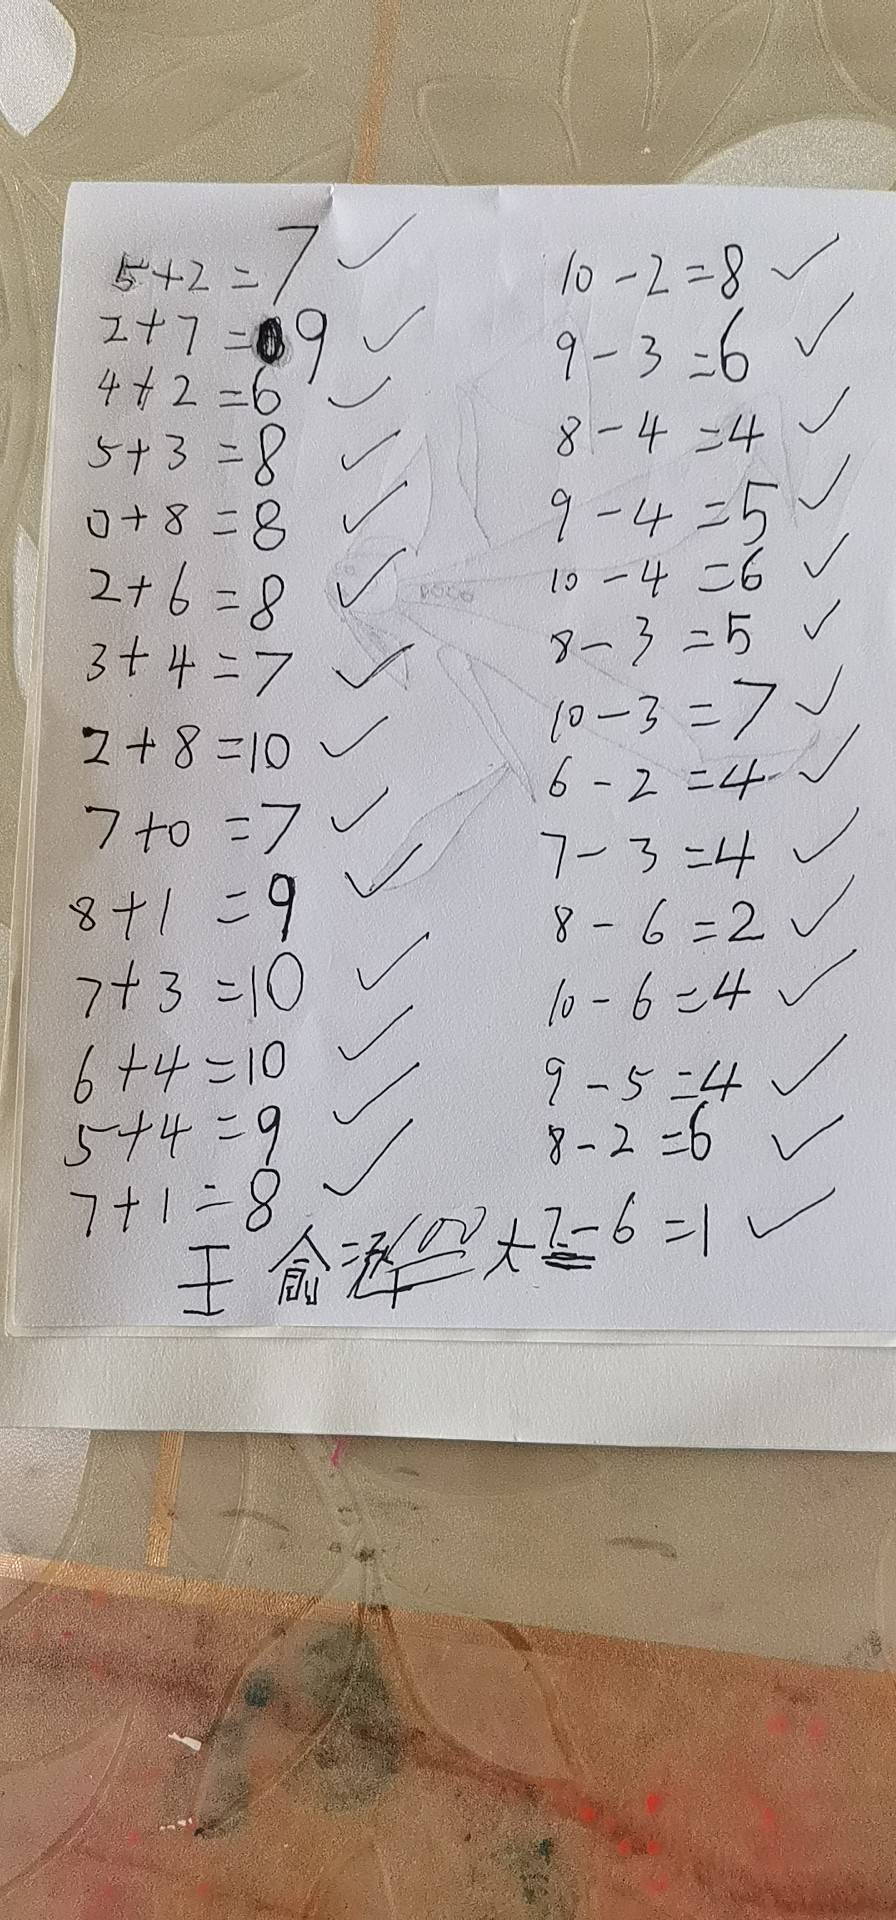 5+2=7 ✓
2+7=9 ✓
4+2=6 ✓
5+3=8 ✓
0+8=8 ✓
2+6=8 ✓
3+4=7 ✓
2+8=10 ✓
7+0=7 ✓
8+1=9 ✓
7+3=10 ✓
6+4=10 ✓
5+4=9 ✓
7+1=8 ✓
10-2=8 ✓
9-3=6 ✓
8-4=4 ✓
9-4=5 ✓
10-4=6 ✓
8-3=5 ✓
10-3=7 ✓
6-2=4 ✓
7-3=4 ✓
8-6=2 ✓
10-6=4 ✓
9-5=4 ✓
8-2=6 ✓
7-6=1 ✓
王俞 100 大